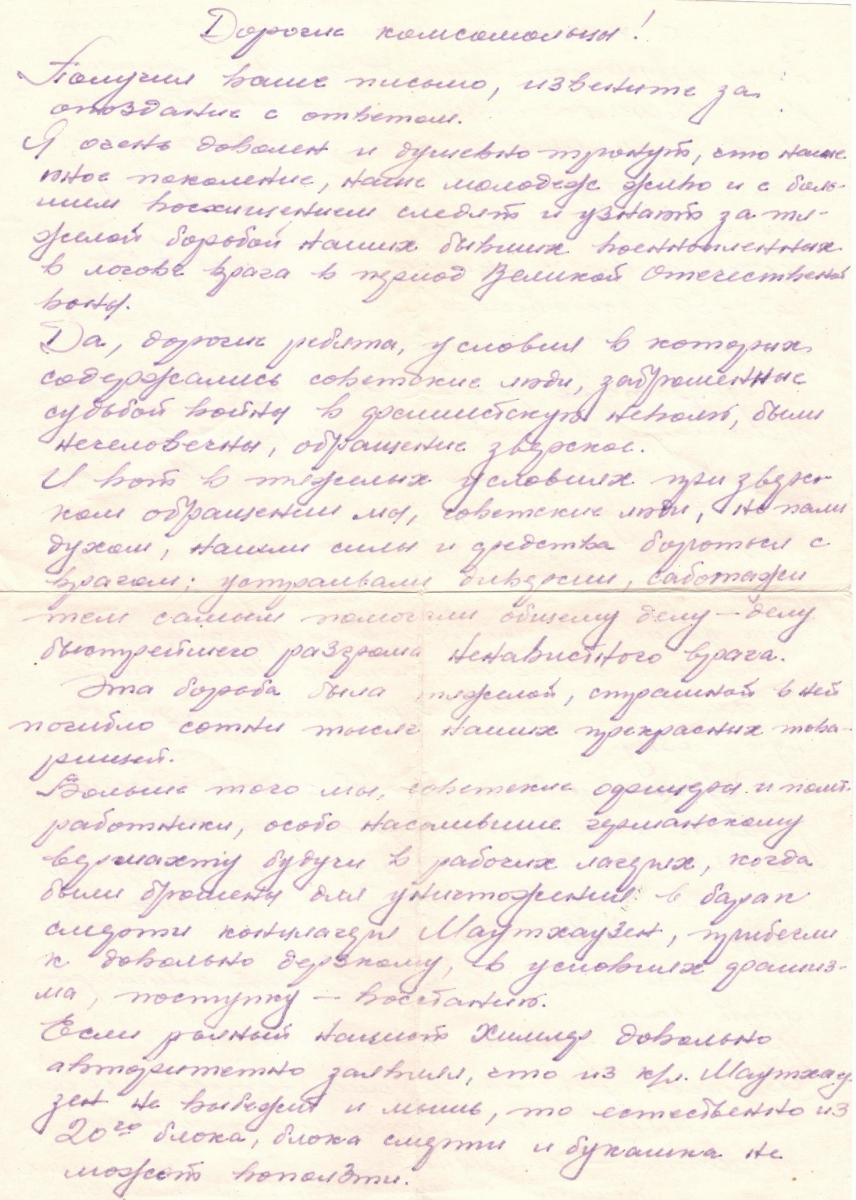 Дорогие комсомольцы!
Получил ваше письмо, извените за
опоздание с ответом.
Я очень доволен и душевно тронут, что ныне
шнее поколение, наше молодеж живо и с боль-
шием восхищением следят и узнают за тя-
желой борьбой наших бывших военнопленных
в логове врага в период Великой Отечественой
воны.
Да, дорогие ребята, условия в которых
содержались советские люди, заброшенные
судьбой войны в фашистскую неволю, были
нечеловечны, обращение зверское.
И вот в тяжелых условиях при зверс-
ком обращении мы, советские люди, не пали
духом, нашли силы и средства бороться с
врагом; устраивали диверсии, саботажи
тем самым помогали общему делу — делу
быстрейшего разгрома ненавистного врага.
Эта борьба была тяжелой, страшной в ней
погибло сотни тысяч наших прекрасных това-
рищей.
Больше того мы, советские офицеры и полит.
работники, особо насолившие германскому
вермахту будучи в рабочих лагерях, когда
были брошены для уничтожения в барак
смерти концлагеря Маутхаузен, прибегли
к довольно дерзкому, в условиях фашиз-
ма, поступку — восстанию.
Если рьяный нацист Химлер довольно
авторитетно заявлял, что из к/л. Маутхау-
зен не выбежит и мышь, то естественно из
20го блока, блока смерти и букашка не
может вополэти.